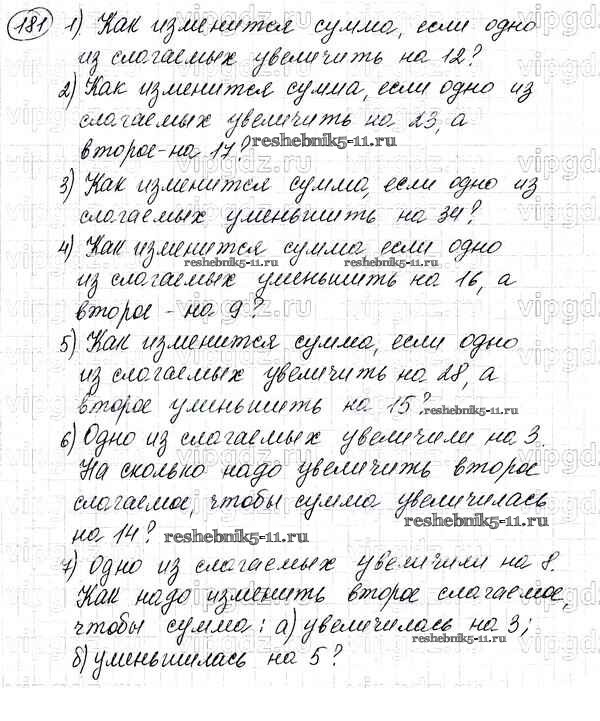 181 1) Как изменится сумма, если одно
из слагаемых увеличить на 12?
2) Как изменится сумма, если одно из
слагаемых увеличить на 23, а
второе - на 17?
reshebnik5-11.ru
3) Как изменится сумма, если одно из
слагаемых уменьшить на 34?
4) Как изменится сумма если одно
reshebnik5-11.ru reshebnik5-11.ru
из слагаемых уменьшить на 16, а
второе - на 9?
5) Как изменится сумма, если одно
из слагаемых увеличить на 28, а
второе уменьшить на 15?
reshebnik5-11.ru
6) Одно из слагаемых увеличили на 3.
На сколько надо увеличить второе
слагаемое, чтобы сумма увеличилась
reshebnik5-11.ru
на 14?
reshebnik5-11.ru
7) Одно из слагаемых увеличили на 8.
Как надо изменить второе слагаемое,
чтобы сумма: а) увеличилась на 3;
reshebnik5-11.ru
б) уменьшилась на 5?